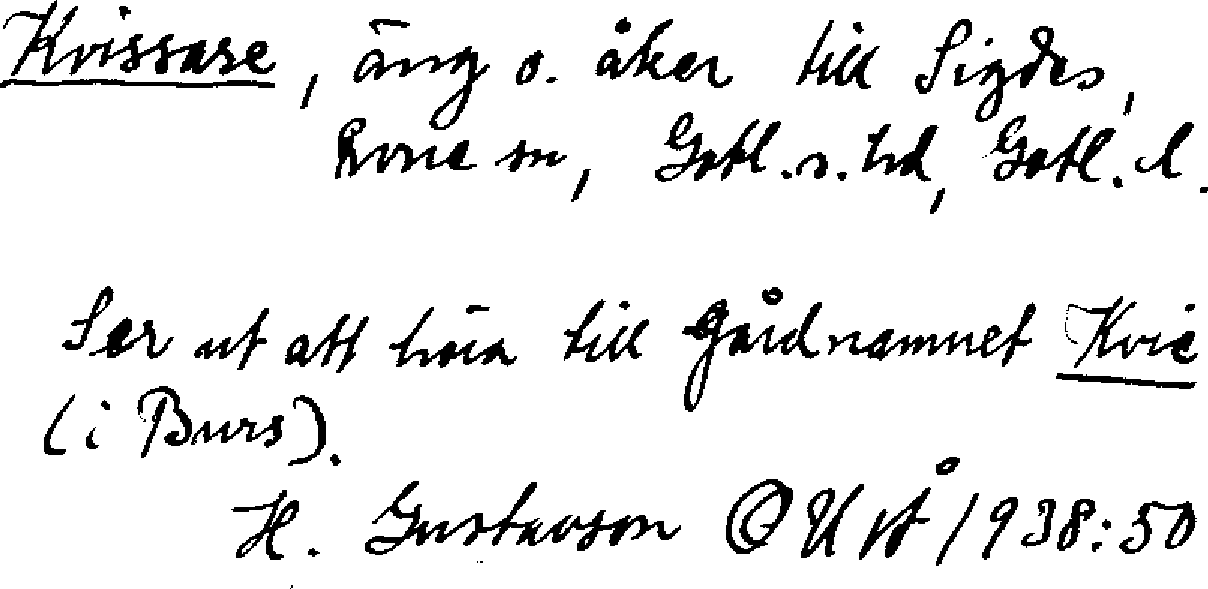 Kvissare, äng o. åker till Sigdes,
Rone sn, Gotl. s. hd, Gotl. l.
Ser ut att höra till gårdnamnet Kvie
(i Burs).
H. Gustavson OUÅ 1938:50